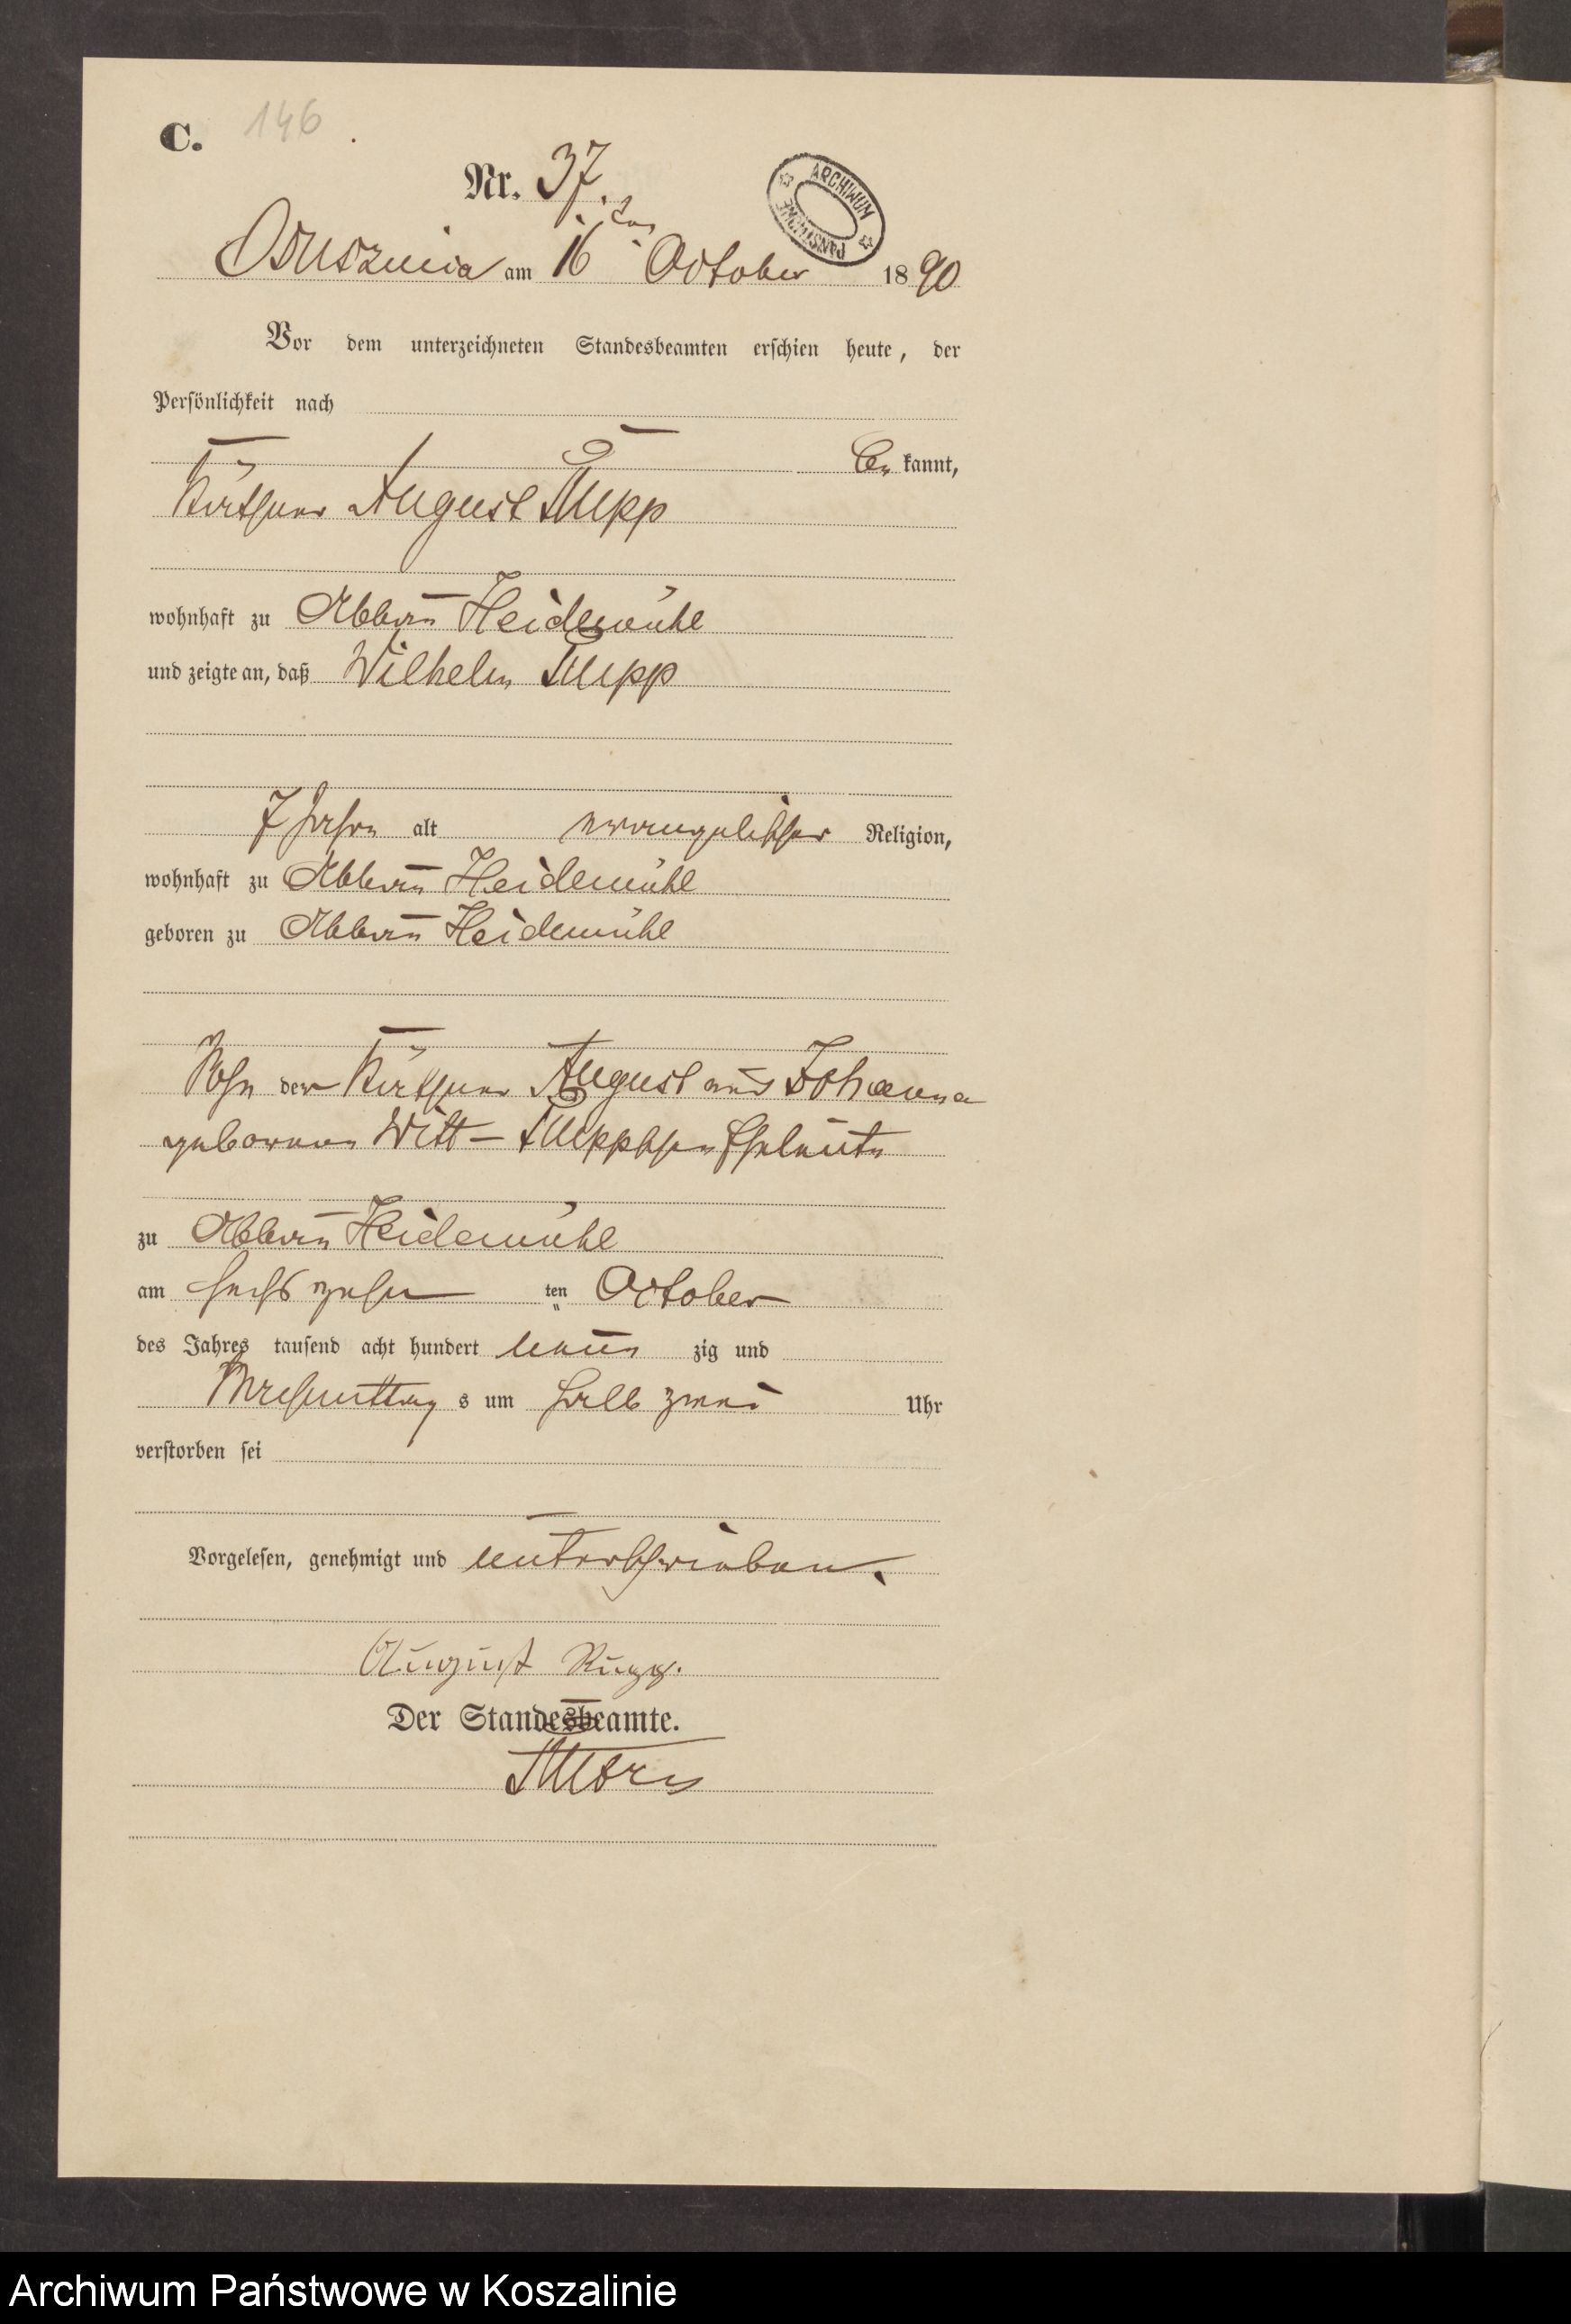 C. 146
Nr. 37.
ARCHIWUM PAŃSTWOWE
Osusznica am 16ten October 1890
Vor dem unterzeichneten Standesbeamten erschien heute, der
Persönlichkeit nach
bekannt,
Käthner August Rupp
wohnhaft zu Abbau Heidemühl
und zeigte an, daß Wilhelm Rupp
7 Jahre alt evangelischer Religion,
wohnhaft zu Abbau Heidemühl
geboren zu Abbau Heidemühl
Sohn der Käthner August und Johanna
geborene Witt - Ruppschen Eheleute
zu Abbau Heidemühl
am sechszehn ten October
des Jahres tausend acht hundert neun zig und
Nachmittag s um halb zwei Uhr
verstorben sei
Vorgelesen, genehmigt und unterschrieben.
August Rupp.
Der Standesbeamte.
Archiwum Państwowe w Koszalinie